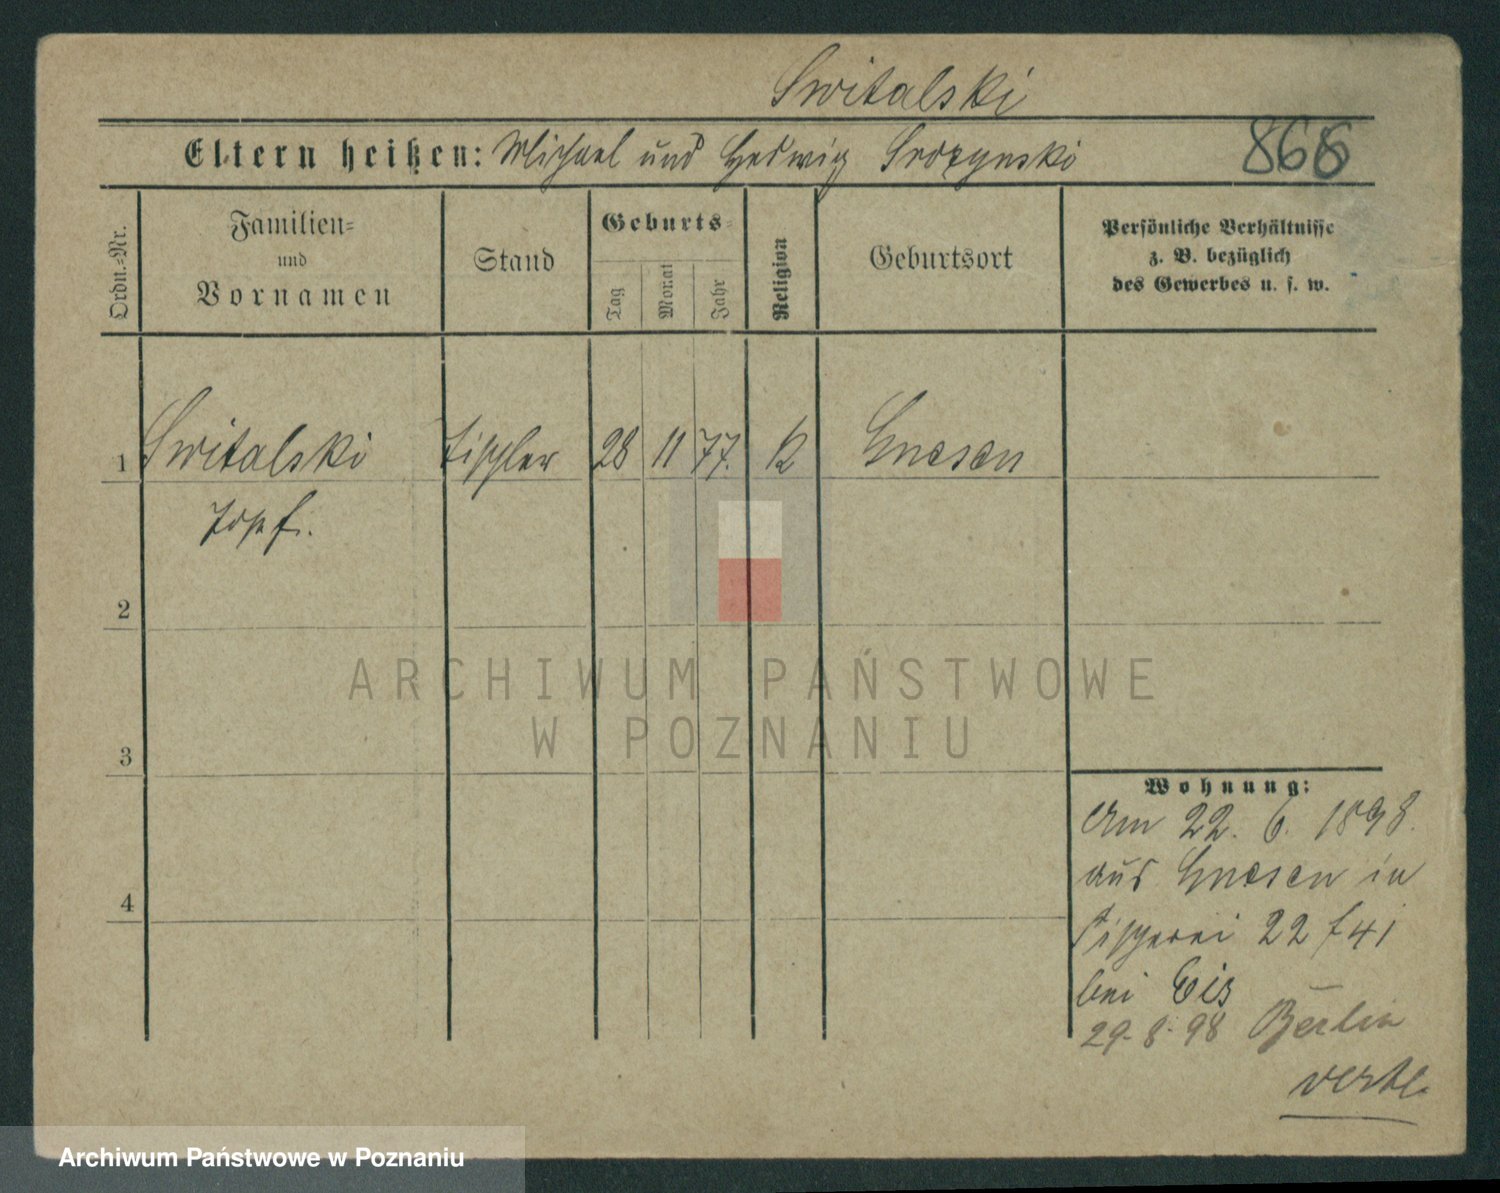 Switalski
Eltern heißen: Michael und Hedwig Srozynski
868
Ordn.-Nr.
Familien-
und
Vornamen
Stand
Geburts-
Tag
Monat
Jahr
Religion
Geburtsort
Persönliche Verhältnisse
z. B. bezüglich
des Gewerbes u. s. w.
1 Switalski Tischler 28 11 77. K Gnesen
Josef.
2
ARCHIWUM PAŃSTWOWE
W POZNANIU
3
Wohnung:
Am 22. 6. 1898.
aus Gnesen in
Fischerei 22
4
bei
29. 8. 98 Berlin
Archiwum Państwowe w Poznaniu